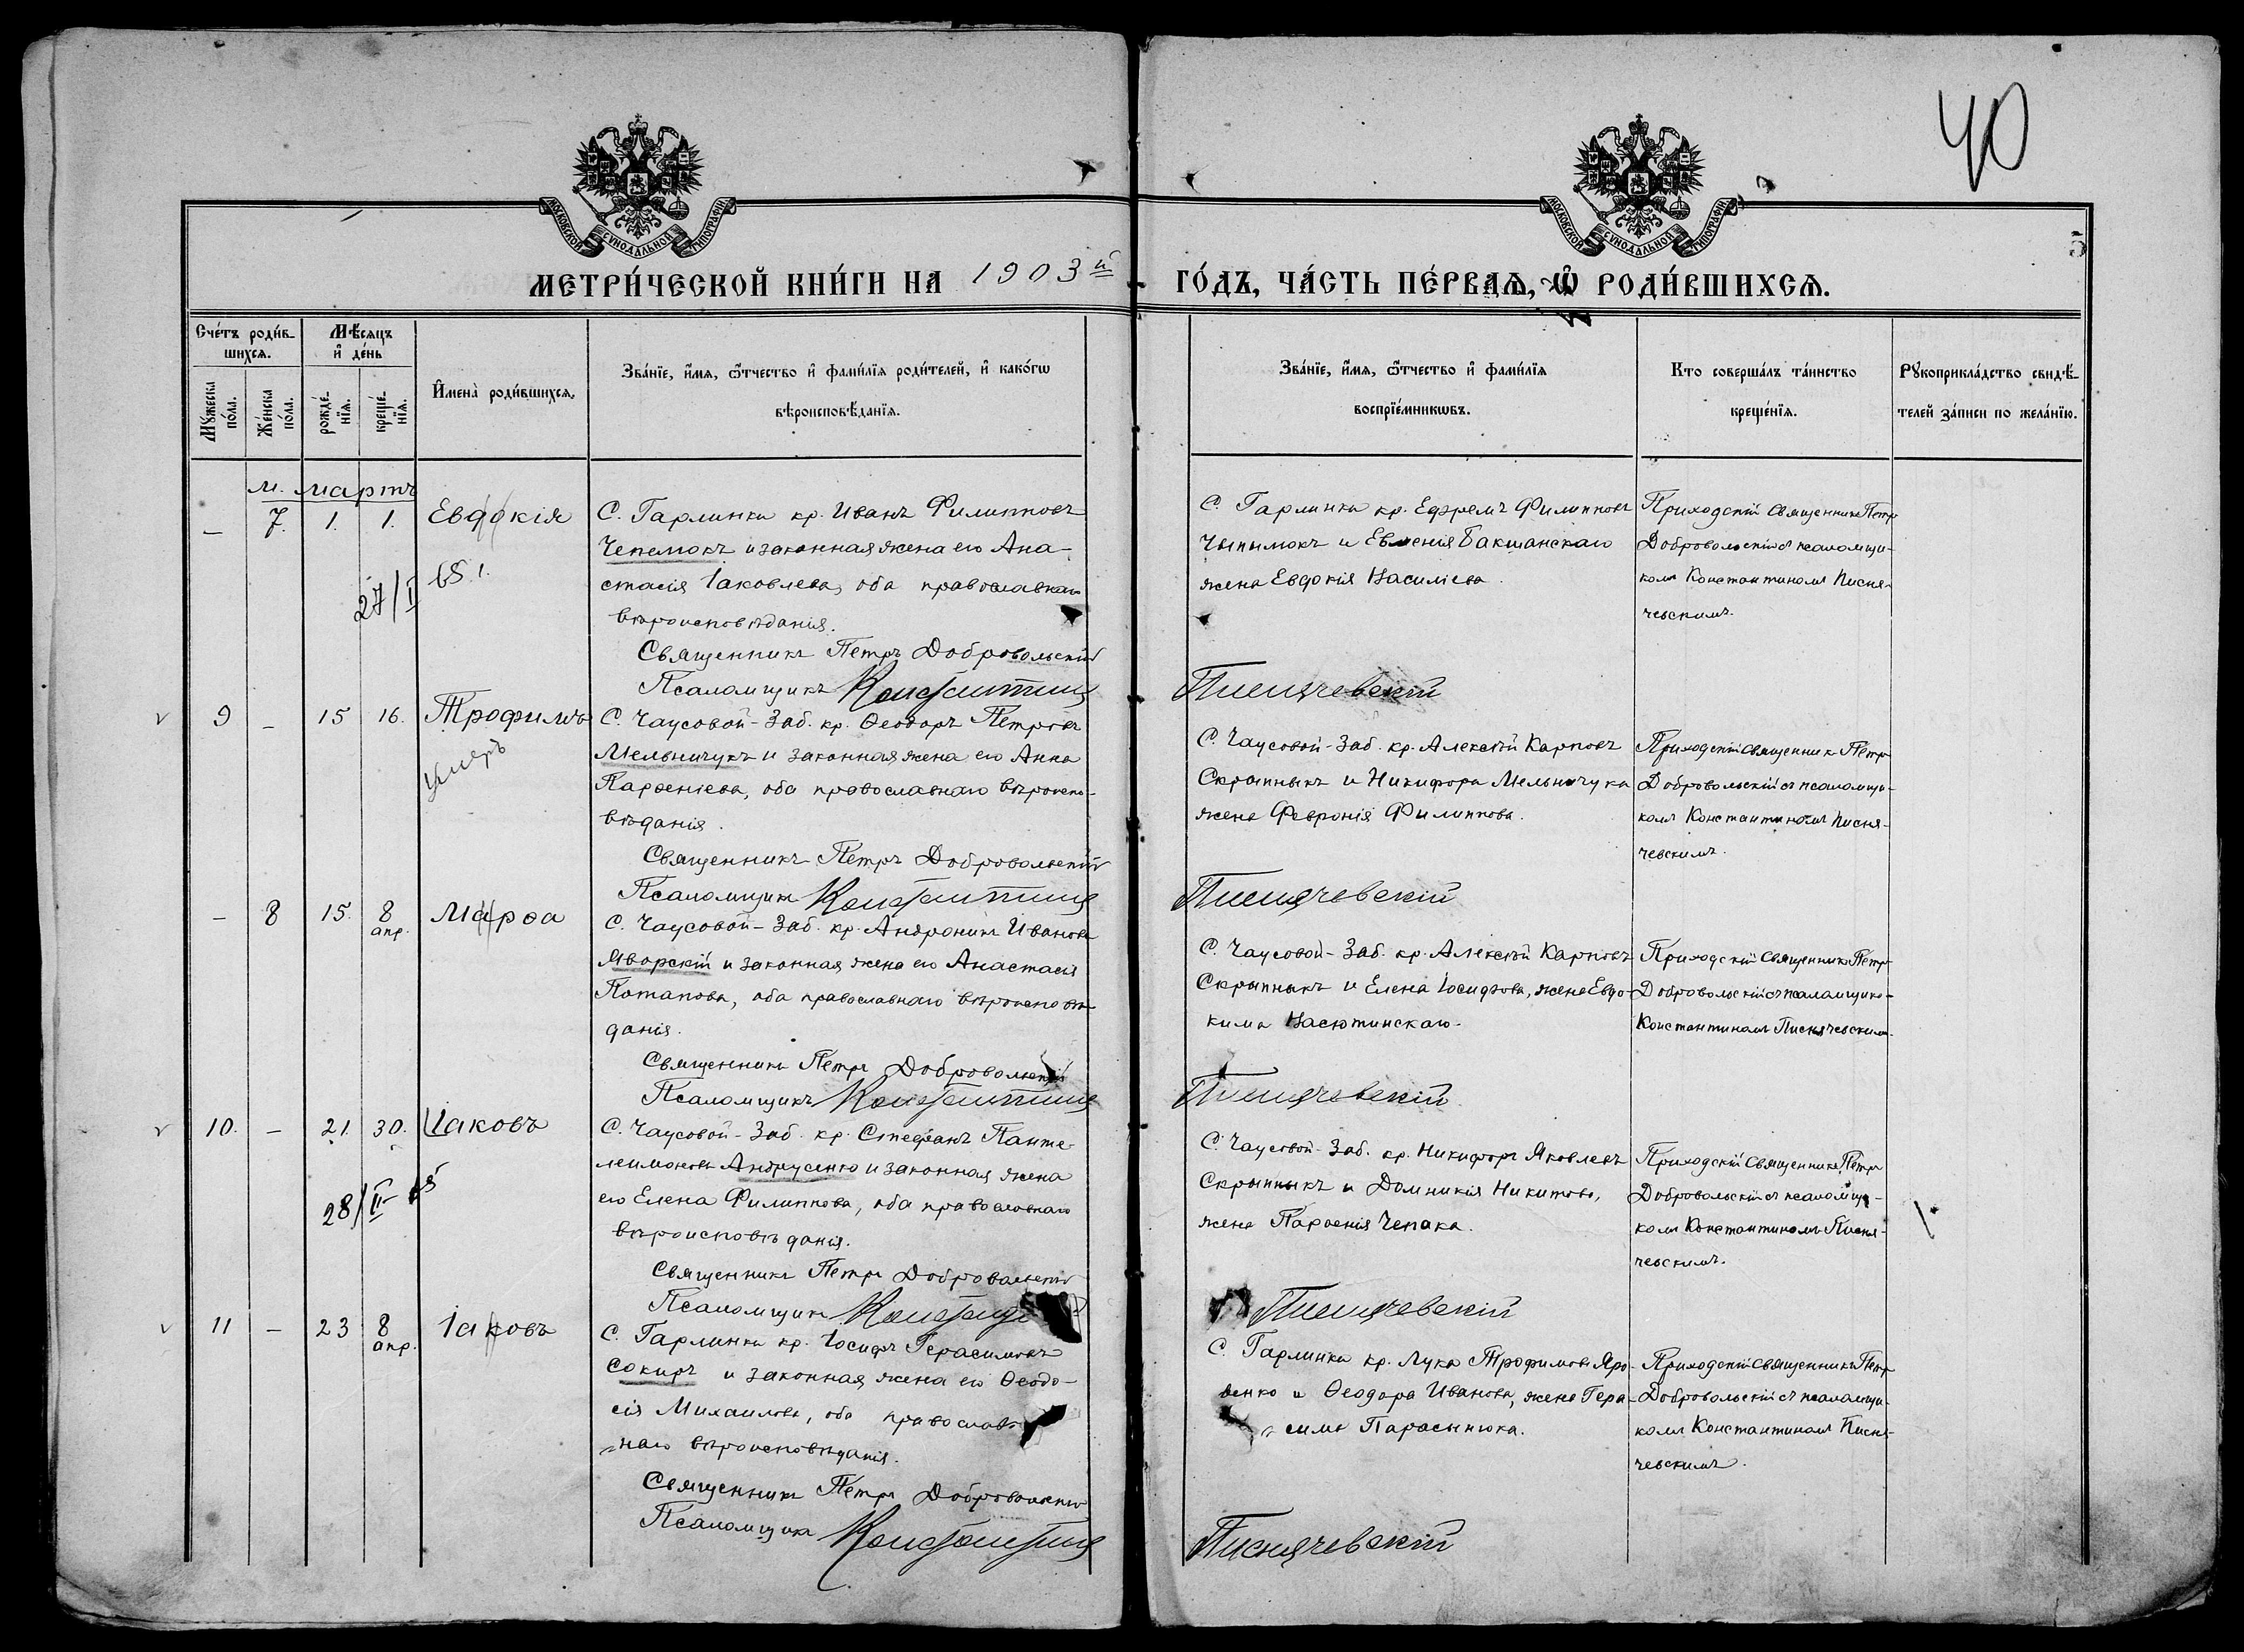 40
МОСКОВСКОЙ СѴНОДАЛЬНОЙ ТИПОГРАФІИ
МОСКОВСКОЙ СѴНОДАЛЬНОЙ ТИПОГРАФІИ
МЕТРИ́ЧЕСКОЙ КНИ́ГИ НА 1903й ГО́ДЪ, ЧА́СТЬ ПЕ́РВАѦ, Ѿ РОДИ́ВШИХСѦ.
Сче́тъ роди́в-
шихсѧ.
Мѣ́сѧцъ
и҆ де́нь
Мꙋ́жеска по́ла.
Же́нска по́ла.
рожде́-
нїѧ.
креще́-
нїѧ.
И҆мена̀ роди́вшихсѧ.
Зва́нїе, и҆́мѧ, ѻ҆́тчество и҆ фами́лїѧ роди́телей, и҆ како́гѡ
вѣроисповѣ́данїѧ.
Зва́нїе, и҆́мѧ, ѻ҆́тчество и҆ фами́лїѧ
воспрїе́мникѡвъ.
Кто соверша́лъ та́инство
креще́нїѧ.
Рꙋкоприкла́дство свидѣ́-
телей за́писи по жела́нїю.
м. мартъ
— 7. 1. 1. Евдокія
27/I 65.
С. Гарлинки кр. Иванъ Филипповъ
Чепемокъ и законная жена его Ана-
стасія Іаковлева, оба православнаго
вѣроисповѣданія.
Священникъ Петръ Добровольскій
Псаломщикъ Константинъ Писнячевскій
С. Гарлинки кр. Ефремъ Филипповъ
Чыпымокъ и Евгенія Бакшанскаго
жена Евдокія Василіева.
Приходскій священникъ Петръ
Добровольскій съ псаломщи-
комъ Константиномъ Писня-
чевскимъ.
v 9 — 15 16. Трофимъ
умеръ
С. Чаусовой-Заб. кр. Ѳеодоръ Петровъ
Мельничукъ и законная жена его Анна
Парѳеніева, оба православнаго вѣроиспо-
вѣданія.
Священникъ Петръ Добровольскій
Псаломщикъ Константинъ Писнячевскій
С. Чаусовой-Заб. кр. Алексѣй Карповъ
Скрыпныкъ и Никифора Мельничука
жена Февронія Филиппова.
Приходскій священникъ Петръ
Добровольскій съ псаломщи-
комъ Константиномъ Писня-
чевскимъ.
— 8 15. 8 апр. Марѳа
С. Чаусовой-Заб. кр. Андроникъ Ивановъ
Яворскій и законная жена его Анастасія
Потапова, оба православнаго вѣроисповѣ-
данія.
Священникъ Петръ Добровольскій
Псаломщикъ Константинъ Писнячевскій
С. Чаусовой-Заб. кр. Алексѣй Карповъ
Скрыпныкъ и Елена Іосифова, жена Евдо-
кима Васютинскаго.
Приходскій священникъ Петръ
Добровольскій съ псаломщико-
Константиномъ Писнячевскимъ.
v 10. — 21. 30. Іаковъ
28/II-65
С. Чаусовой-Заб. кр. Стефанъ Панте-
леимоновъ Андрусенко и законная жена
его Елена Филиппова, оба православнаго
вѣроисповѣданія.
Священникъ Петръ Добровольскій
Псаломщикъ Константинъ Писнячевскій
С. Чаусовой-Заб. кр. Никифоръ Яковлевъ
Скрыпныкъ и Домникія Никитова,
жена Парѳенія Чепака.
Приходскій священникъ Петръ
Добровольскій съ псаломщи-
комъ Константиномъ Писня-
чевскимъ.
v 11 — 23 8 апр. Іаковъ
С. Гарлинки кр. Іосифъ Герасимовъ
Сокиръ и законная жена его Ѳеодо-
сія Михаилова, оба православ-
наго вѣроисповѣданія.
Священникъ Петръ Добровольскій
Псаломщикъ Константинъ Писнячевскій
С. Гарлинки кр. Лука Трофимовъ Яро-
венко и Ѳеодора Иванова, жена Гера-
сима Парасынюка.
Приходскій священникъ Петръ
Добровольскій съ псаломщи-
комъ Константиномъ Писня-
чевскимъ.